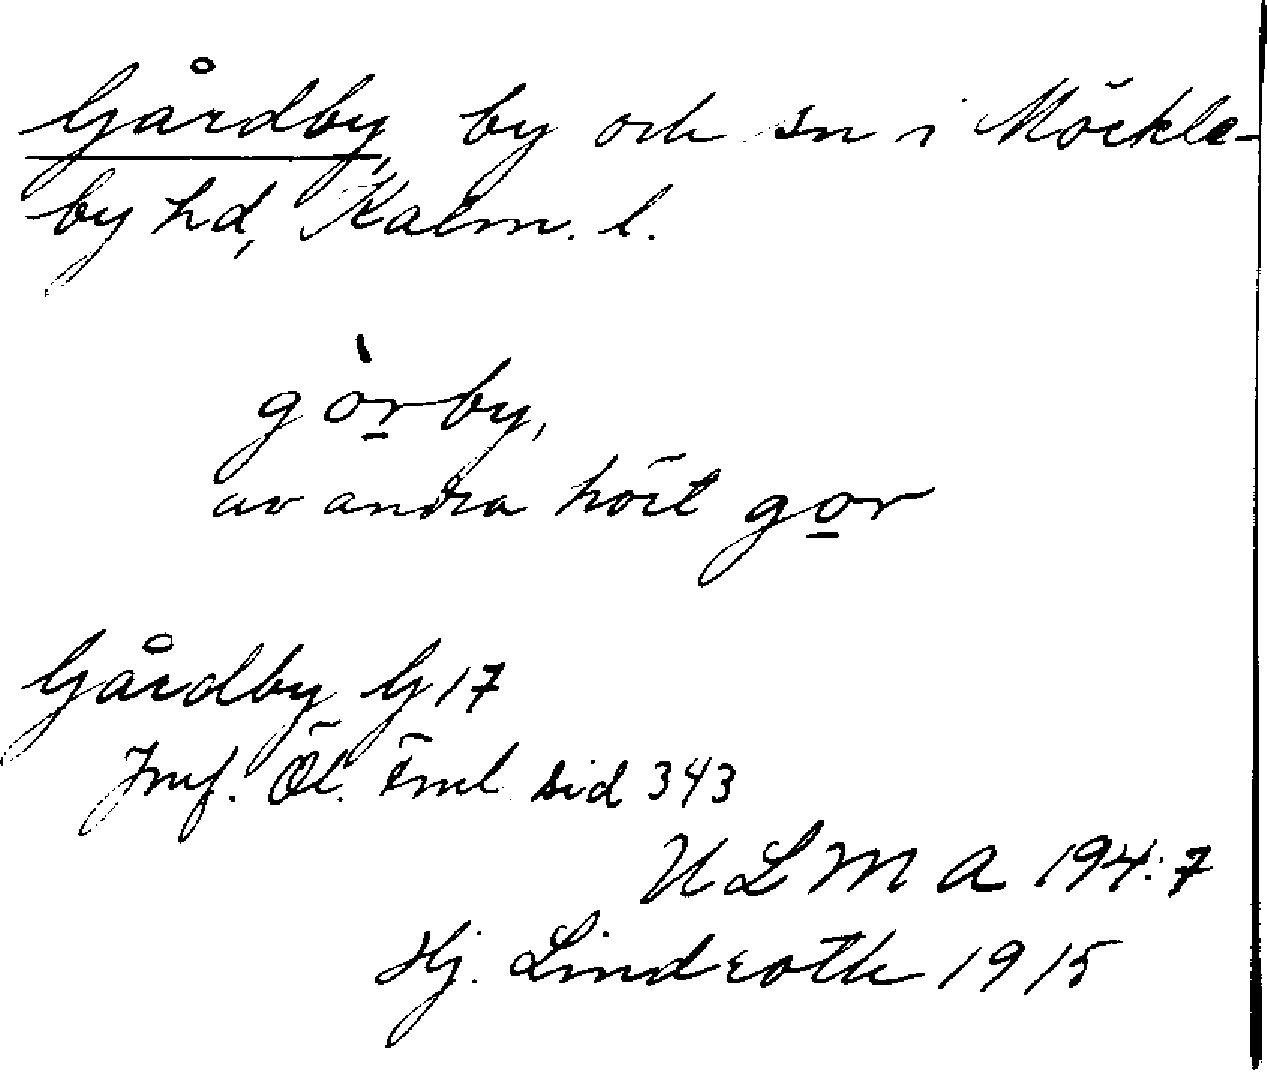 Gårdby, by och sn i Möckle-
by hd, Kalm. l.
gòr̲by,
av andra hört go̲r
Gårdby G 17
Jmf. Öl. Fml sid 343
ULMA 194:7
Hj. Lindroth 1915